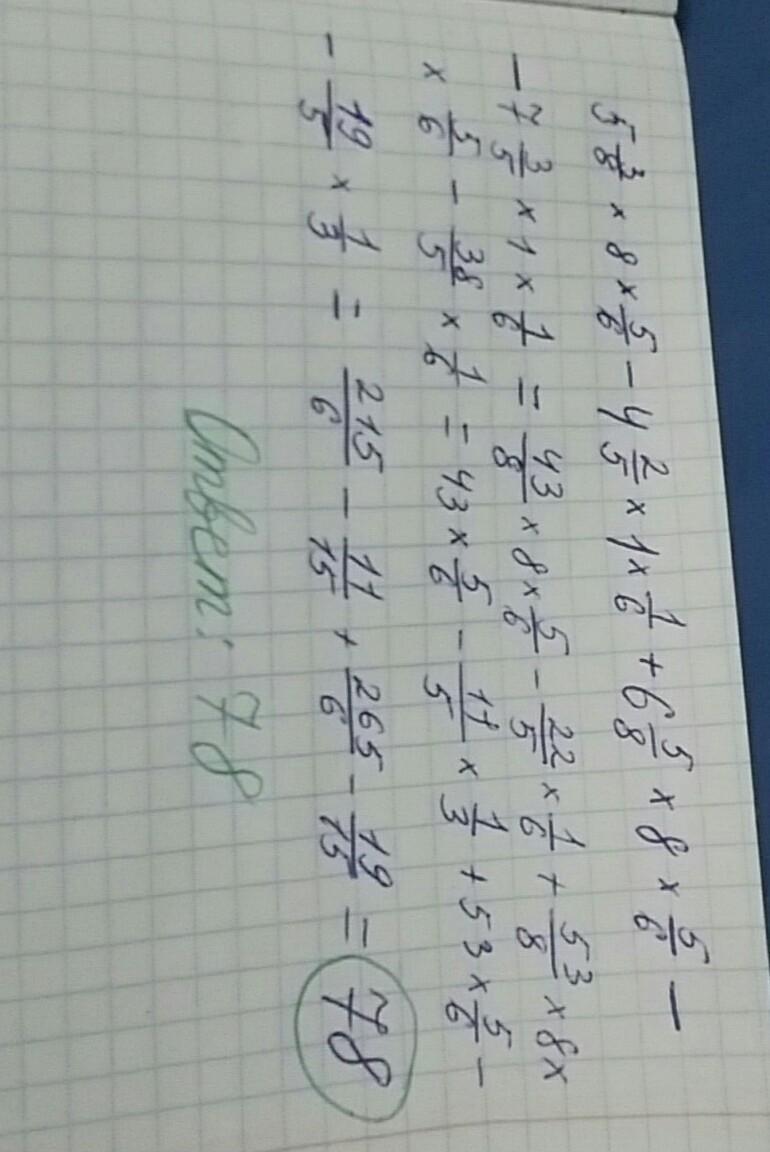 5 3/8 × 8 × 5/6 − 4 2/5 × 1 × 1/6 + 6 5/8 × 8 × 5/6 −
− 7 3/5 × 1 × 1/6 = 43/8 × 8 × 5/6 − 22/5 × 1/6 + 53/8 × 8 ×
× 5/6 − 38/5 × 1/6 = 43 × 5/6 − 11/5 × 1/3 + 53 × 5/6 −
− 19/5 × 1/3 = 215/6 − 11/15 + 265/6 − 19/15 = 78
Ответ: 78